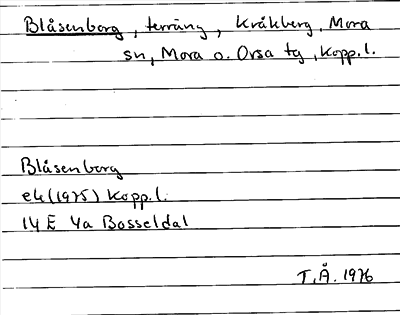 Blåsenborg, terräng, Kråkberg, Mora
sn, Mora o. Orsa tg, Kopp.l.
Blåsenborg
ek (1975) Kopp.l.
14 E 4a Bosseldal
T.Å. 1976